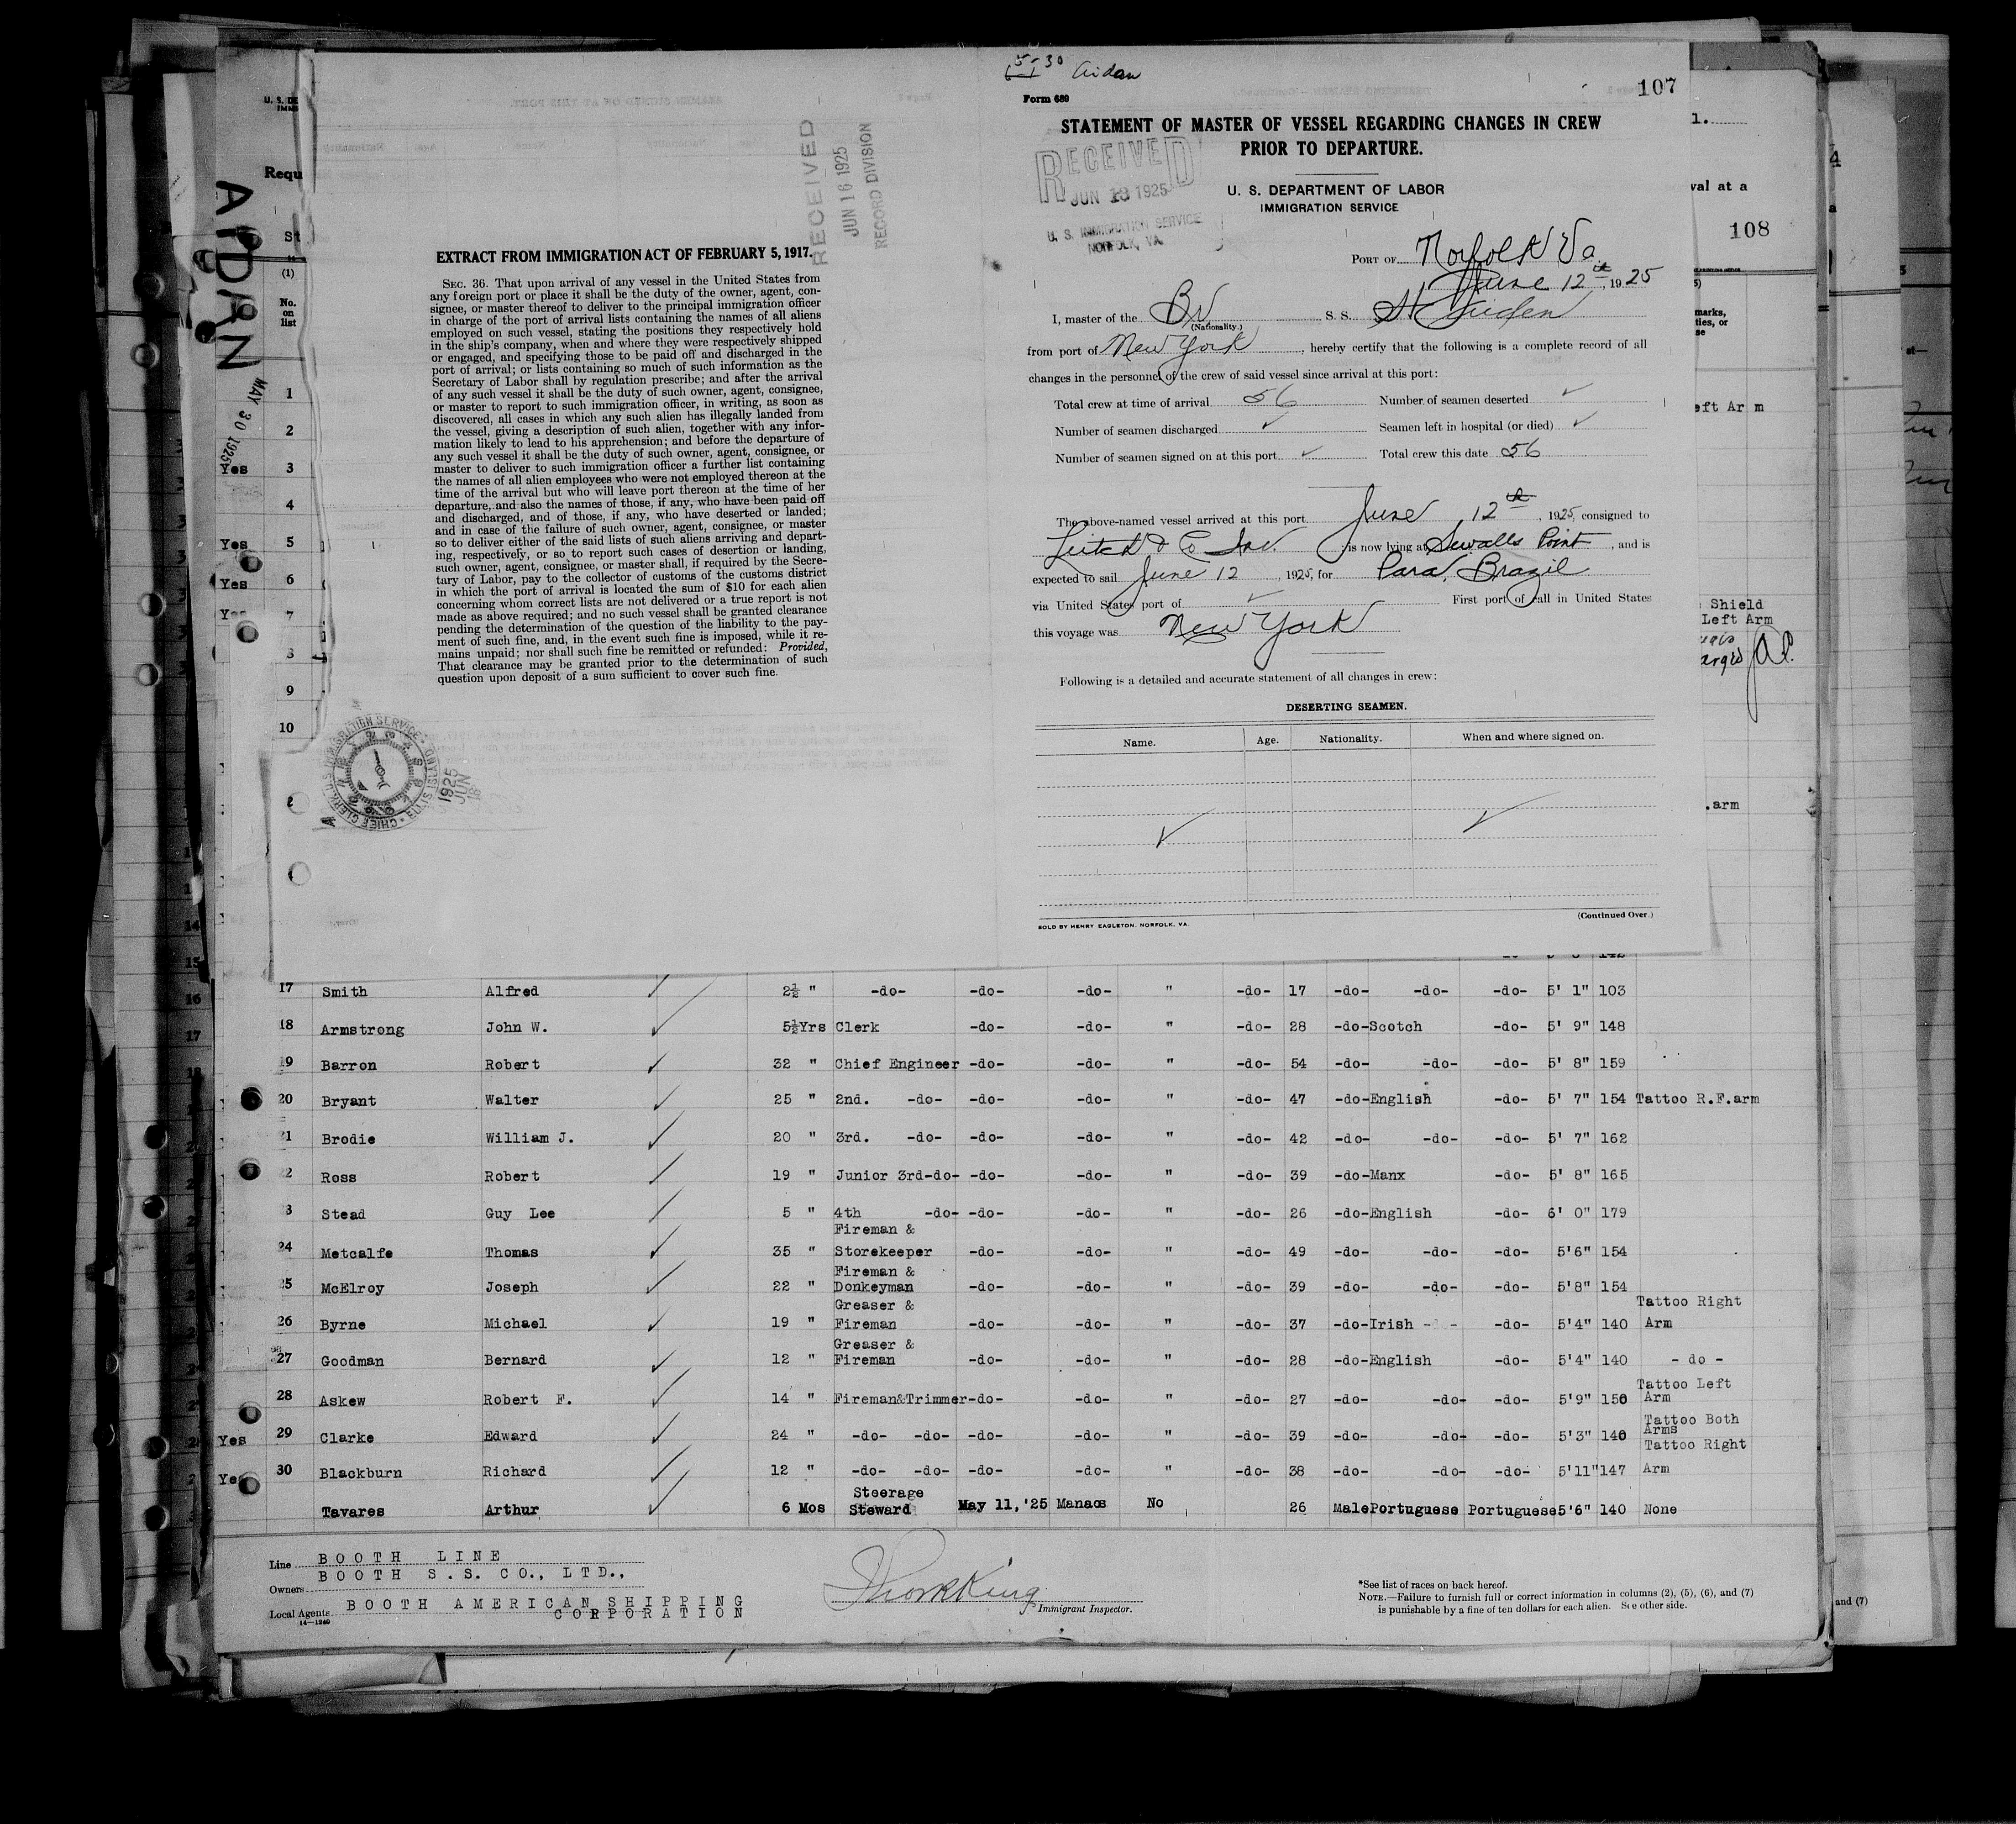 5-30 Aidan
107
Form 689
STATEMENT OF MASTER OF VESSEL REGARDING CHANGES IN CREW
PRIOR TO DEPARTURE.
U. S. DEPARTMENT OF LABOR
IMMIGRATION SERVICE
RECEIVED
JUN 13 1925
U. S. IMMIGRATION SERVICE
NORFOLK, VA.
PORT OF Norfolk Va.
June 12th, 1925
I, master of the Br S. S.
(Nationality.)
from port of New York, hereby certify that the following is a complete record of all
changes in the personnel of the crew of said vessel since arrival at this port:
Total crew at time of arrival 56 Number of seamen deserted ✓
Number of seamen discharged ✓ Seamen left in hospital (or died) ✓
Number of seamen signed on at this port ✓ Total crew this date 56
The above-named vessel arrived at this port June 12th, 1925, consigned to
& Co Inc. is now lying at Sewalls Point, and is
expected to sail June 12, 1925, for Para, Brazil
via United States port of ✓ First port of call in United States
this voyage was New York
Following is a detailed and accurate statement of all changes in crew:
DESERTING SEAMEN.
Name. Age. Nationality. When and where signed on.
✓ ✓
(Continued Over.)
SOLD BY HENRY EAGLETON, NORFOLK, VA.
RECEIVED
JUN 16 1925
RECORD DIVISION
EXTRACT FROM IMMIGRATION ACT OF FEBRUARY 5, 1917.
SEC. 36. That upon arrival of any vessel in the United States from
any foreign port or place it shall be the duty of the owner, agent, con-
signee, or master thereof to deliver to the principal immigration officer
in charge of the port of arrival lists containing the names of all aliens
employed on such vessel, stating the positions they respectively hold
in the ship's company, when and where they were respectively shipped
or engaged, and specifying those to be paid off and discharged in the
port of arrival; or lists containing so much of such information as the
Secretary of Labor shall by regulation prescribe; and after the arrival
of any such vessel it shall be the duty of such owner, agent, consignee,
or master to report to such immigration officer, in writing, as soon as
discovered, all cases in which any such alien has illegally landed from
the vessel, giving a description of such alien, together with any infor-
mation likely to lead to his apprehension; and before the departure of
any such vessel it shall be the duty of such owner, agent, consignee, or
master to deliver to such immigration officer a further list containing
the names of all alien employees who were not employed thereon at the
time of the arrival but who will leave port thereon at the time of her
departure, and also the names of those, if any, who have been paid off
and discharged, and of those, if any, who have deserted or landed;
and in case of the failure of such owner, agent, consignee, or master
so to deliver either of the said lists of such aliens arriving and depart-
ing, respectively, or so to report such cases of desertion or landing,
such owner, agent, consignee, or master shall, if required by the Secre-
tary of Labor, pay to the collector of customs of the customs district
in which the port of arrival is located the sum of $10 for each alien
concerning whom correct lists are not delivered or a true report is not
made as above required; and no such vessel shall be granted clearance
pending the determination of the question of the liability to the pay-
ment of such fine, and, in the event such fine is imposed, while it re-
mains unpaid; nor shall such fine be remitted or refunded: Provided,
That clearance may be granted prior to the determination of such
question upon deposit of a sum sufficient to cover such fine.
AIDAN
MAY 30 1925
U. S. DE
IMMI
Requ
St
(1)
No.
on
list
1
2
Yes 3
4
Yes 5
Yes 6
7
8
9
10
CHIEF CLERK, U.S. IMMIGRATION SERVICE, ELLIS ISLAND
1925 JUN 16
val at a
108
marks,
ties, or
se
eft Arm
Shield
Left Arm
.arm
17 Smith Alfred ✓ 2½ " -do- -do- -do- " -do- 17 -do- -do- -do- 5' 1" 103
18 Armstrong John W. ✓ 5½Yrs Clerk -do- -do- " -do- 28 -do-Scotch -do- 5' 9" 148
19 Barron Robert ✓ 32 " Chief Engineer -do- -do- " -do- 54 -do- -do- -do- 5' 8" 159
20 Bryant Walter ✓ 25 " 2nd. -do- -do- -do- " -do- 47 -do-English -do- 5' 7" 154 Tattoo R.F.arm
21 Brodie William J. ✓ 20 " 3rd. -do- -do- -do- " -do- 42 -do- -do- -do- 5' 7" 162
22 Ross Robert ✓ 19 " Junior 3rd-do- -do- -do- " -do- 39 -do-Manx -do- 5' 8" 165
23 Stead Guy Lee ✓ 5 " 4th -do- -do- -do- " -do- 26 -do-English -do- 6' 0" 179
Fireman &
24 Metcalfe Thomas ✓ 35 " Storekeeper -do- -do- " -do- 49 -do- -do- -do- 5'6" 154
Fireman &
25 McElroy Joseph ✓ 22 " Donkeyman -do- -do- " -do- 39 -do- -do- -do- 5'8" 154
Greaser & Tattoo Right
26 Byrne Michael ✓ 19 " Fireman -do- -do- " -do- 37 -do-Irish -do- 5'4" 140 Arm
Greaser &
27 Goodman Bernard ✓ 12 " Fireman -do- -do- " -do- 28 -do-English -do- 5'4" 140 - do -
Tattoo Left
28 Askew Robert F. ✓ 14 " Fireman&Trimmer-do- -do- " -do- 27 -do- -do- -do- 5'9" 150 Arm
Tattoo Both
Yes 29 Clarke Edward ✓ 24 " -do- -do- -do- -do- " -do- 39 -do- -do- -do- 5'3" 140 Arms
Tattoo Right
Yes 30 Blackburn Richard ✓ 12 " -do- -do- -do- -do- " -do- 38 -do- -do- -do- 5'11"147 Arm
Steerage
Tavares Arthur ✓ 6 Mos Steward May 11,'25 Manaos No 26 Male Portuguese Portuguese 5'6" 140 None
Line BOOTH LINE
Owners BOOTH S.S. CO., LTD.,
Local Agents BOOTH AMERICAN SHIPPING
CORPORATION
14-1240
Immigrant Inspector.
*See list of races on back hereof.
NOTE.—Failure to furnish full or correct information in columns (2), (5), (6), and (7)
is punishable by a fine of ten dollars for each alien. See other side.
and (7)